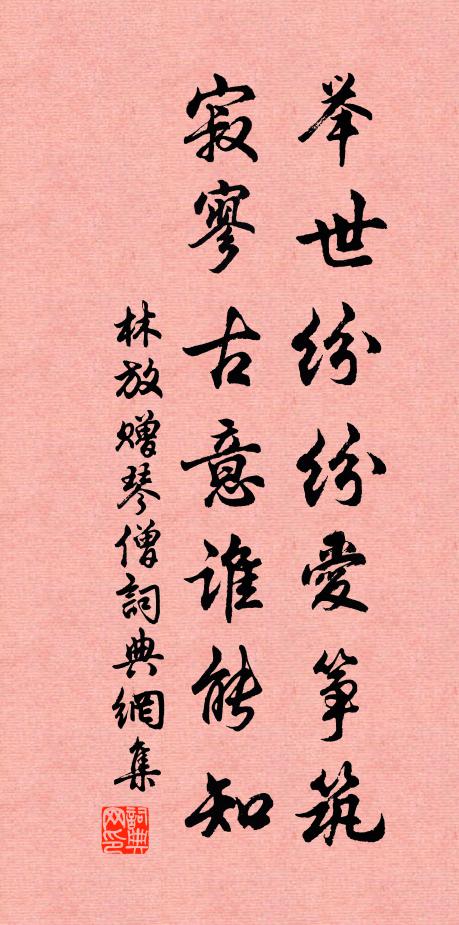 举世纷纷爱筝筑
寂寥古意谁能知
林放赠琴僧詞典網集
詞典网印